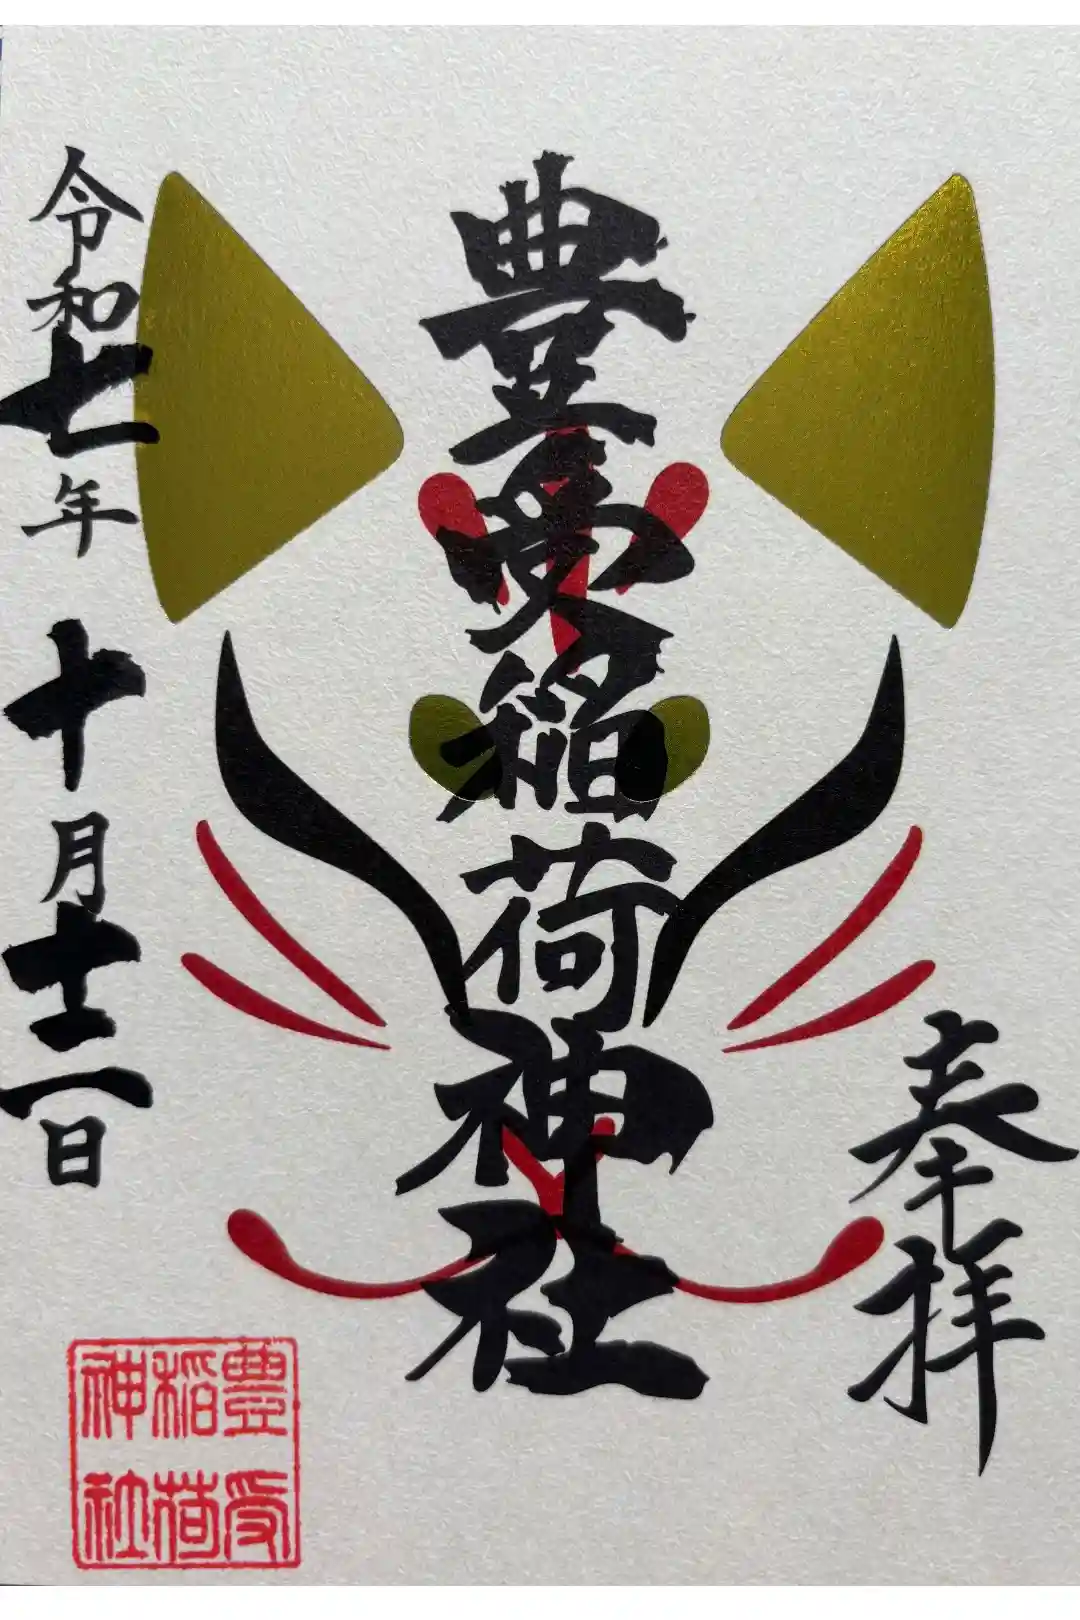 奉拝
豊受稲荷神社
令和七年 十月十二日
豊受
稲荷
神社